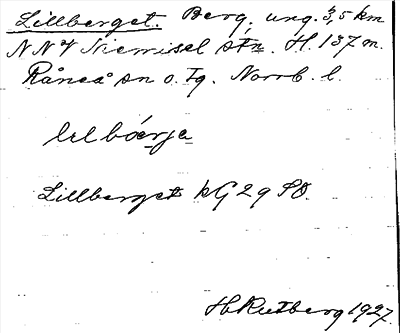 Lillberget. Berg. ung. 3,5 km
NNV Niemisel stn. H. 137 m.
Råneå sn o. Tg. Norrb. l.
Lillberget kG 29 SO.
H. Rutberg 1927.